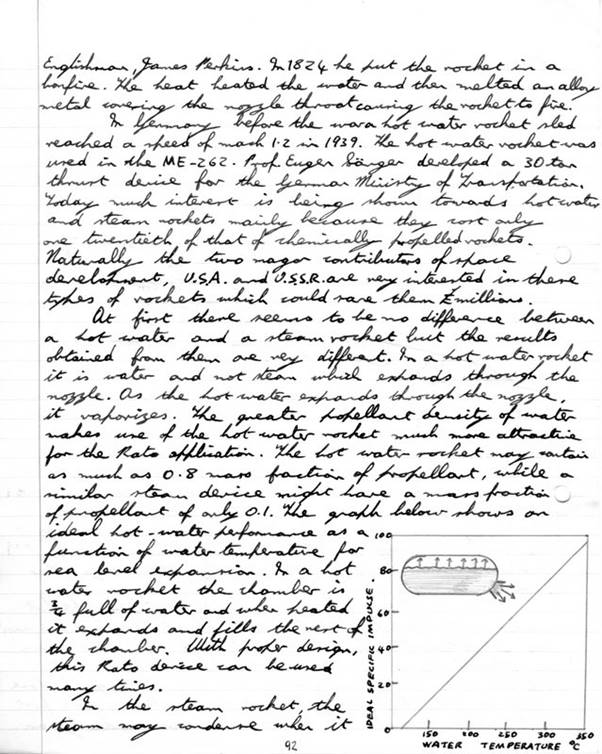 Englishman, James Perkins. In 1824 he put the rocket in a
bonfire. The heat heated the water and then melted an alloy
metal covering the nozzle throat causing the rocket to fire.
In Germany before the war a hot water rocket sled
reached a speed of mach 1.2 in 1939. The hot water rocket was
used in the ME-262. Prof. Eugen Sänger developed a 30 ton
thrust device for the German Ministry of Transportation.
Today much interest is being shown towards hot water
and steam rockets mainly because they cost only
one twentieth of that of chemically propelled rockets.
Naturally the two magor contributors of space
development, U.S.A. and U.S.S.R. are very interested in these
types of rockets which could save them £ millions.
At first there seems to be no difference between
a hot water and a steam rocket but the results
obtained from them are very different. In a hot water rocket
it is water and not steam which expands through the
nozzle. As the hot water expands through the nozzle,
it vaporizes. The greater propellant density of water
makes use of the hot water rocket much more attractive
for the Rato application. The hot water rocket may contain
as much as 0.8 mass fraction of propellant, while a
similar steam device might have a mass fraction
of propellant of only 0.1. The graph below shows an
ideal hot-water performance as a
function of water temperature for
sea level expansion. In a hot
water rocket the chamber is
¾ full of water and when heated
it expands and fills the rest of
the chamber. With proper design,
this Rato device can be used
many times.
In the steam rocket, the
steam may condense when it
100
80
60
40
20
0
IDEAL SPECIFIC IMPULSE.
150 200 250 300 350
WATER TEMPERATURE °C
92